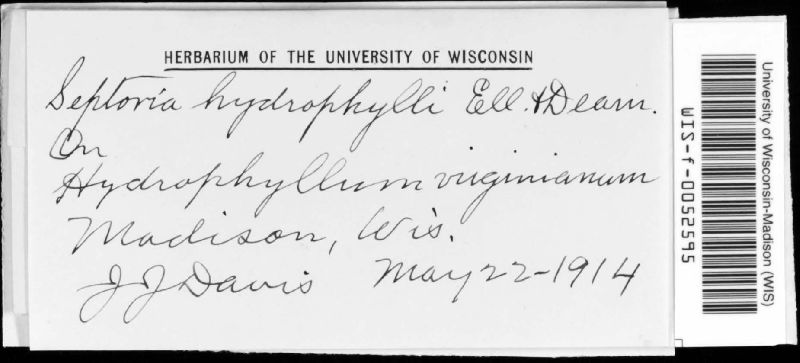 HERBARIUM OF THE UNIVERSITY OF WISCONSIN
Septoria hydrophylli Ell. & Dearn.
On
Hydrophyllum virginianum
Madison, Wis.
J J Davis May 22-1914
University of Wisconsin-Madison (WIS)
WIS-f-0052595